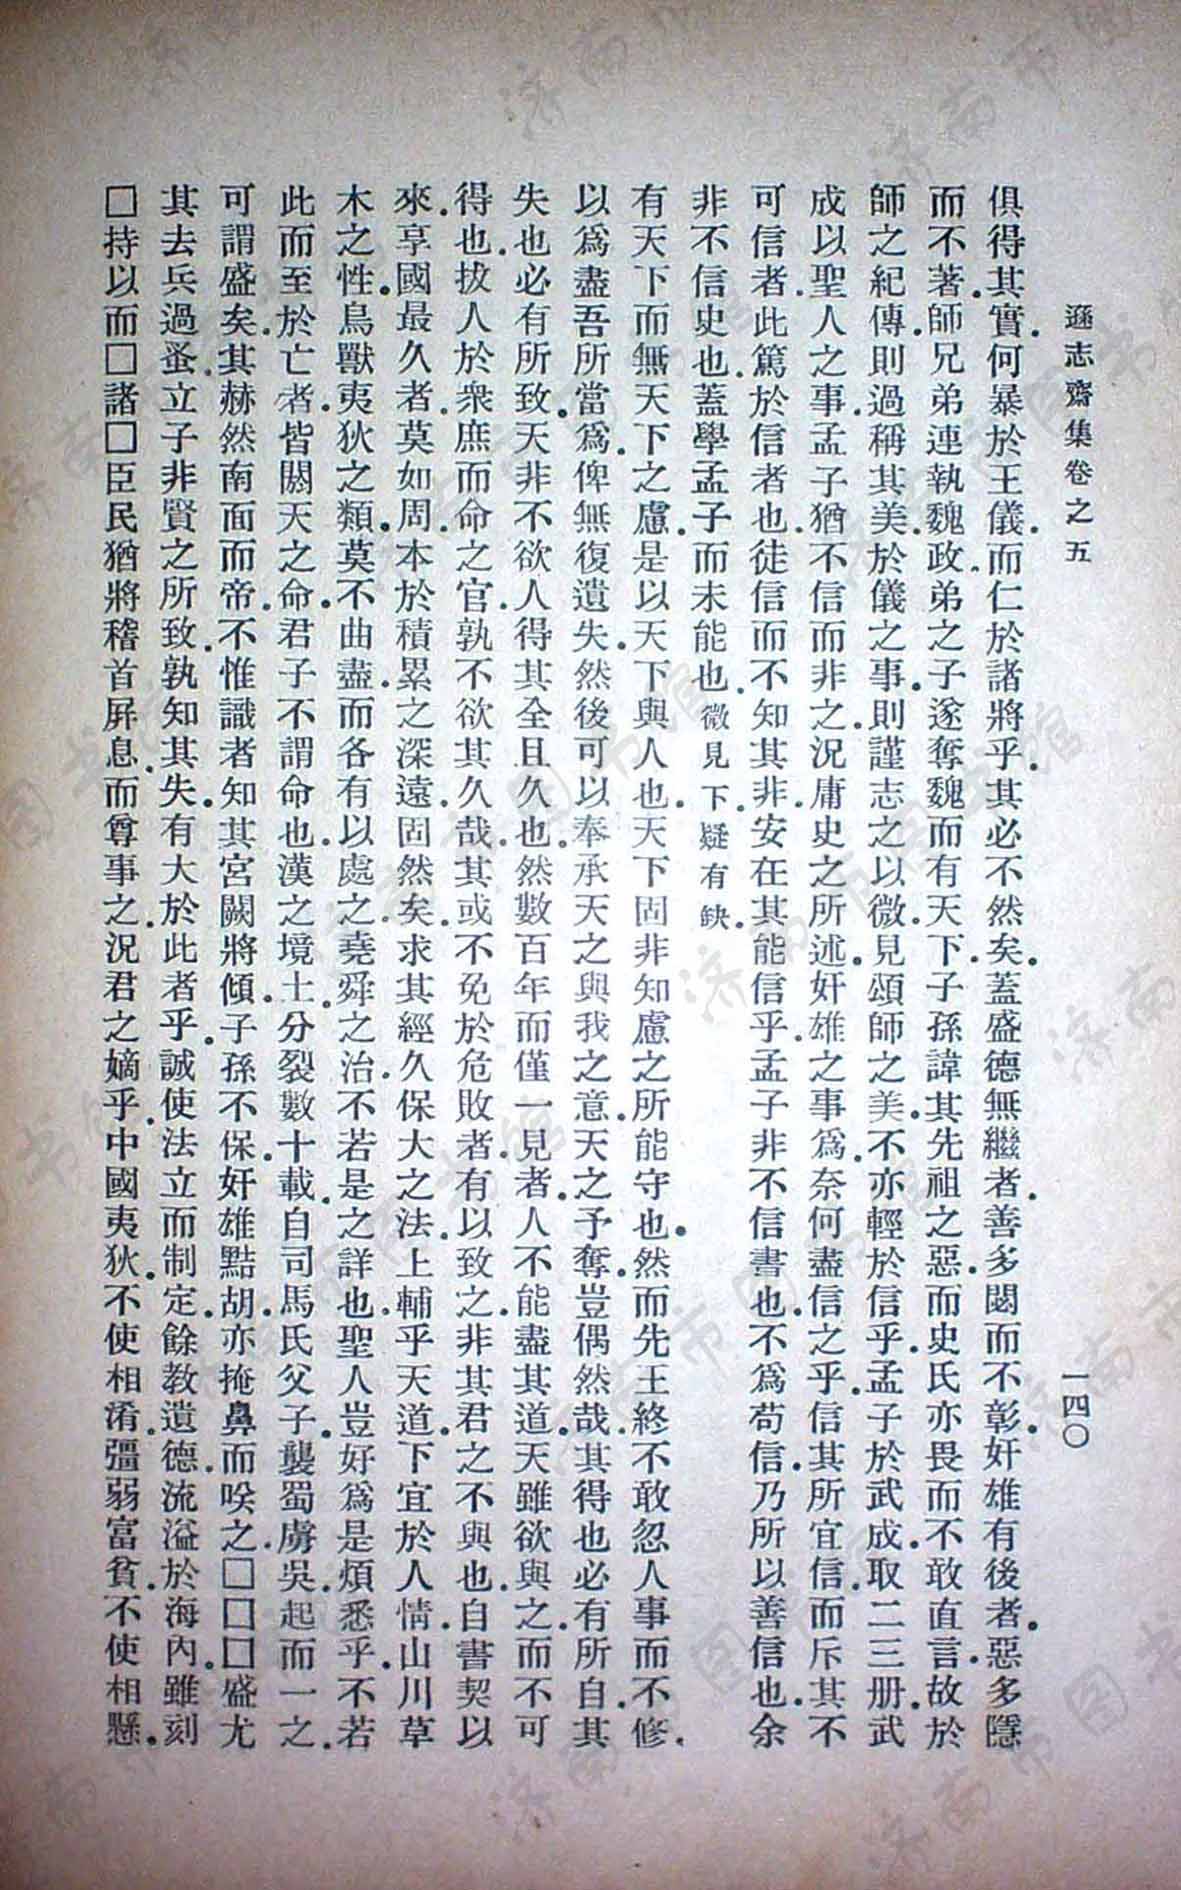 遜志齋集卷之五
一四〇
俱得其實。何暴於王儀。而仁於諸將乎。其必不然矣。蓋盛德無繼者。善多閟而不彰。奸雄有後者。惡多隱
而不著。師兄弟連執魏政。弟之子遂奪魏而有天下。子孫諱其先祖之惡。而史氏亦畏而不敢直言。故於
師之紀傳。則過稱其美。於儀之事。則謹志之以微見頌師之美。不亦輕於信乎。孟子於武成。取二三册。武
成以聖人之事。孟子猶不信而非之。況庸史之所述。奸雄之事爲。奈何盡信之乎。信其所宜信。而斥其不
可信者。此篤於信者也。徒信而不知其非。安在其能信乎。孟子非不信書也。不爲苟信。乃所以善信也。余
非不信史也。蓋學孟子而未能也。微見下。疑有缺。
有天下而無天下之慮。是以天下與人也。天下固非知慮之所能守也。然而先王終不敢忽人事而不修。
以爲盡吾所當爲。俾無復遺失。然後可以奉承天之與我之意。天之予奪。豈偶然哉。其得也必有所自。其
失也。必有所致。天非不欲人得其全且久也。然數百年而僅一見者。人不能盡其道。天雖欲與之而不可
得也。拔人於衆庶而命之官。孰不欲其久哉。其或不免於危敗者。有以致之。非其君之不與也。自書契以
來。享國最久者。莫如周。本於積累之深遠。固然矣。求其經久保大之法。上輔乎天道。下宜於人情。山川草
木之性。鳥獸夷狄之類。莫不曲盡。而各有以處之。堯舜之治。不若是之詳也。聖人豈好爲是煩悉乎。不若
此而至於亡者。皆閼天之命。君子不謂命也。漢之境土。分裂數十載。自司馬氏父子。襲蜀虜吳。起而一之。
可謂盛矣。其赫然南面而帝。不惟識者知其宮闕將傾。子孫不保。奸雄點胡。亦掩鼻而唉之。□□□盛尤
其去兵過蚤。立子非賢之所致。孰知其失。有大於此者乎。誠使法立而制定。餘教遺德。流溢於海內。雖刻
□持以而□諸□臣民猶將稽首屏息。而尊事之。況君之嫡乎。中國夷狄。不使相淆。彊弱富貧。不使相懸。